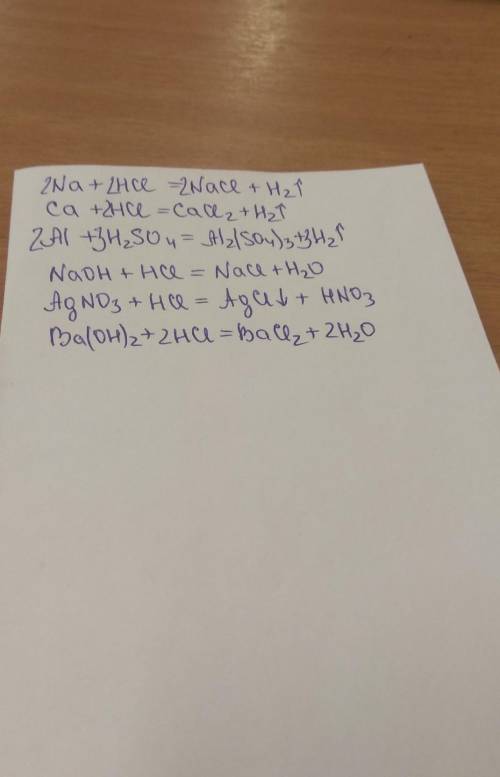 2Na + 2HCl = 2NaCl + H₂↑
Ca + 2HCl = CaCl₂ + H₂↑
2Al + 3H₂SO₄ = Al₂(SO₄)₃ + 3H₂↑
NaOH + HCl = NaCl + H₂O
AgNO₃ + HCl = AgCl↓ + HNO₃
Ba(OH)₂ + 2HCl = BaCl₂ + 2H₂O